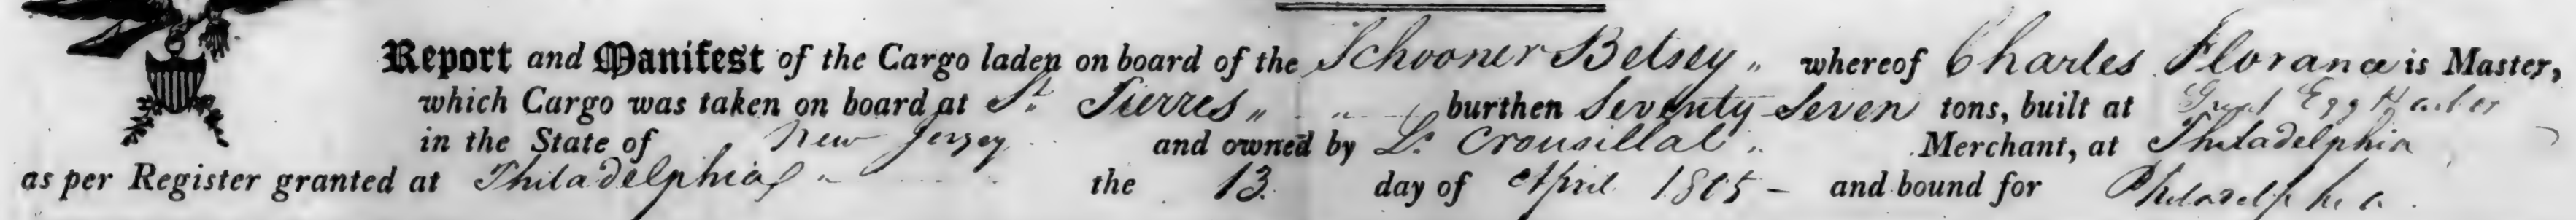 Report and Manifest of the Cargo laden on board of the Schooner Betsey „ whereof Charles Florance is Master,
which Cargo was taken on board at St. Pierres „ „ burthen Seventy Seven tons, built at Great Egg Harbor
in the State of New Jersey and owned by L. Crousillat „ Merchant, at Philadelphia
as per Register granted at Philadelphia „ the 13. day of April 1805 – and bound for Philadelphia.